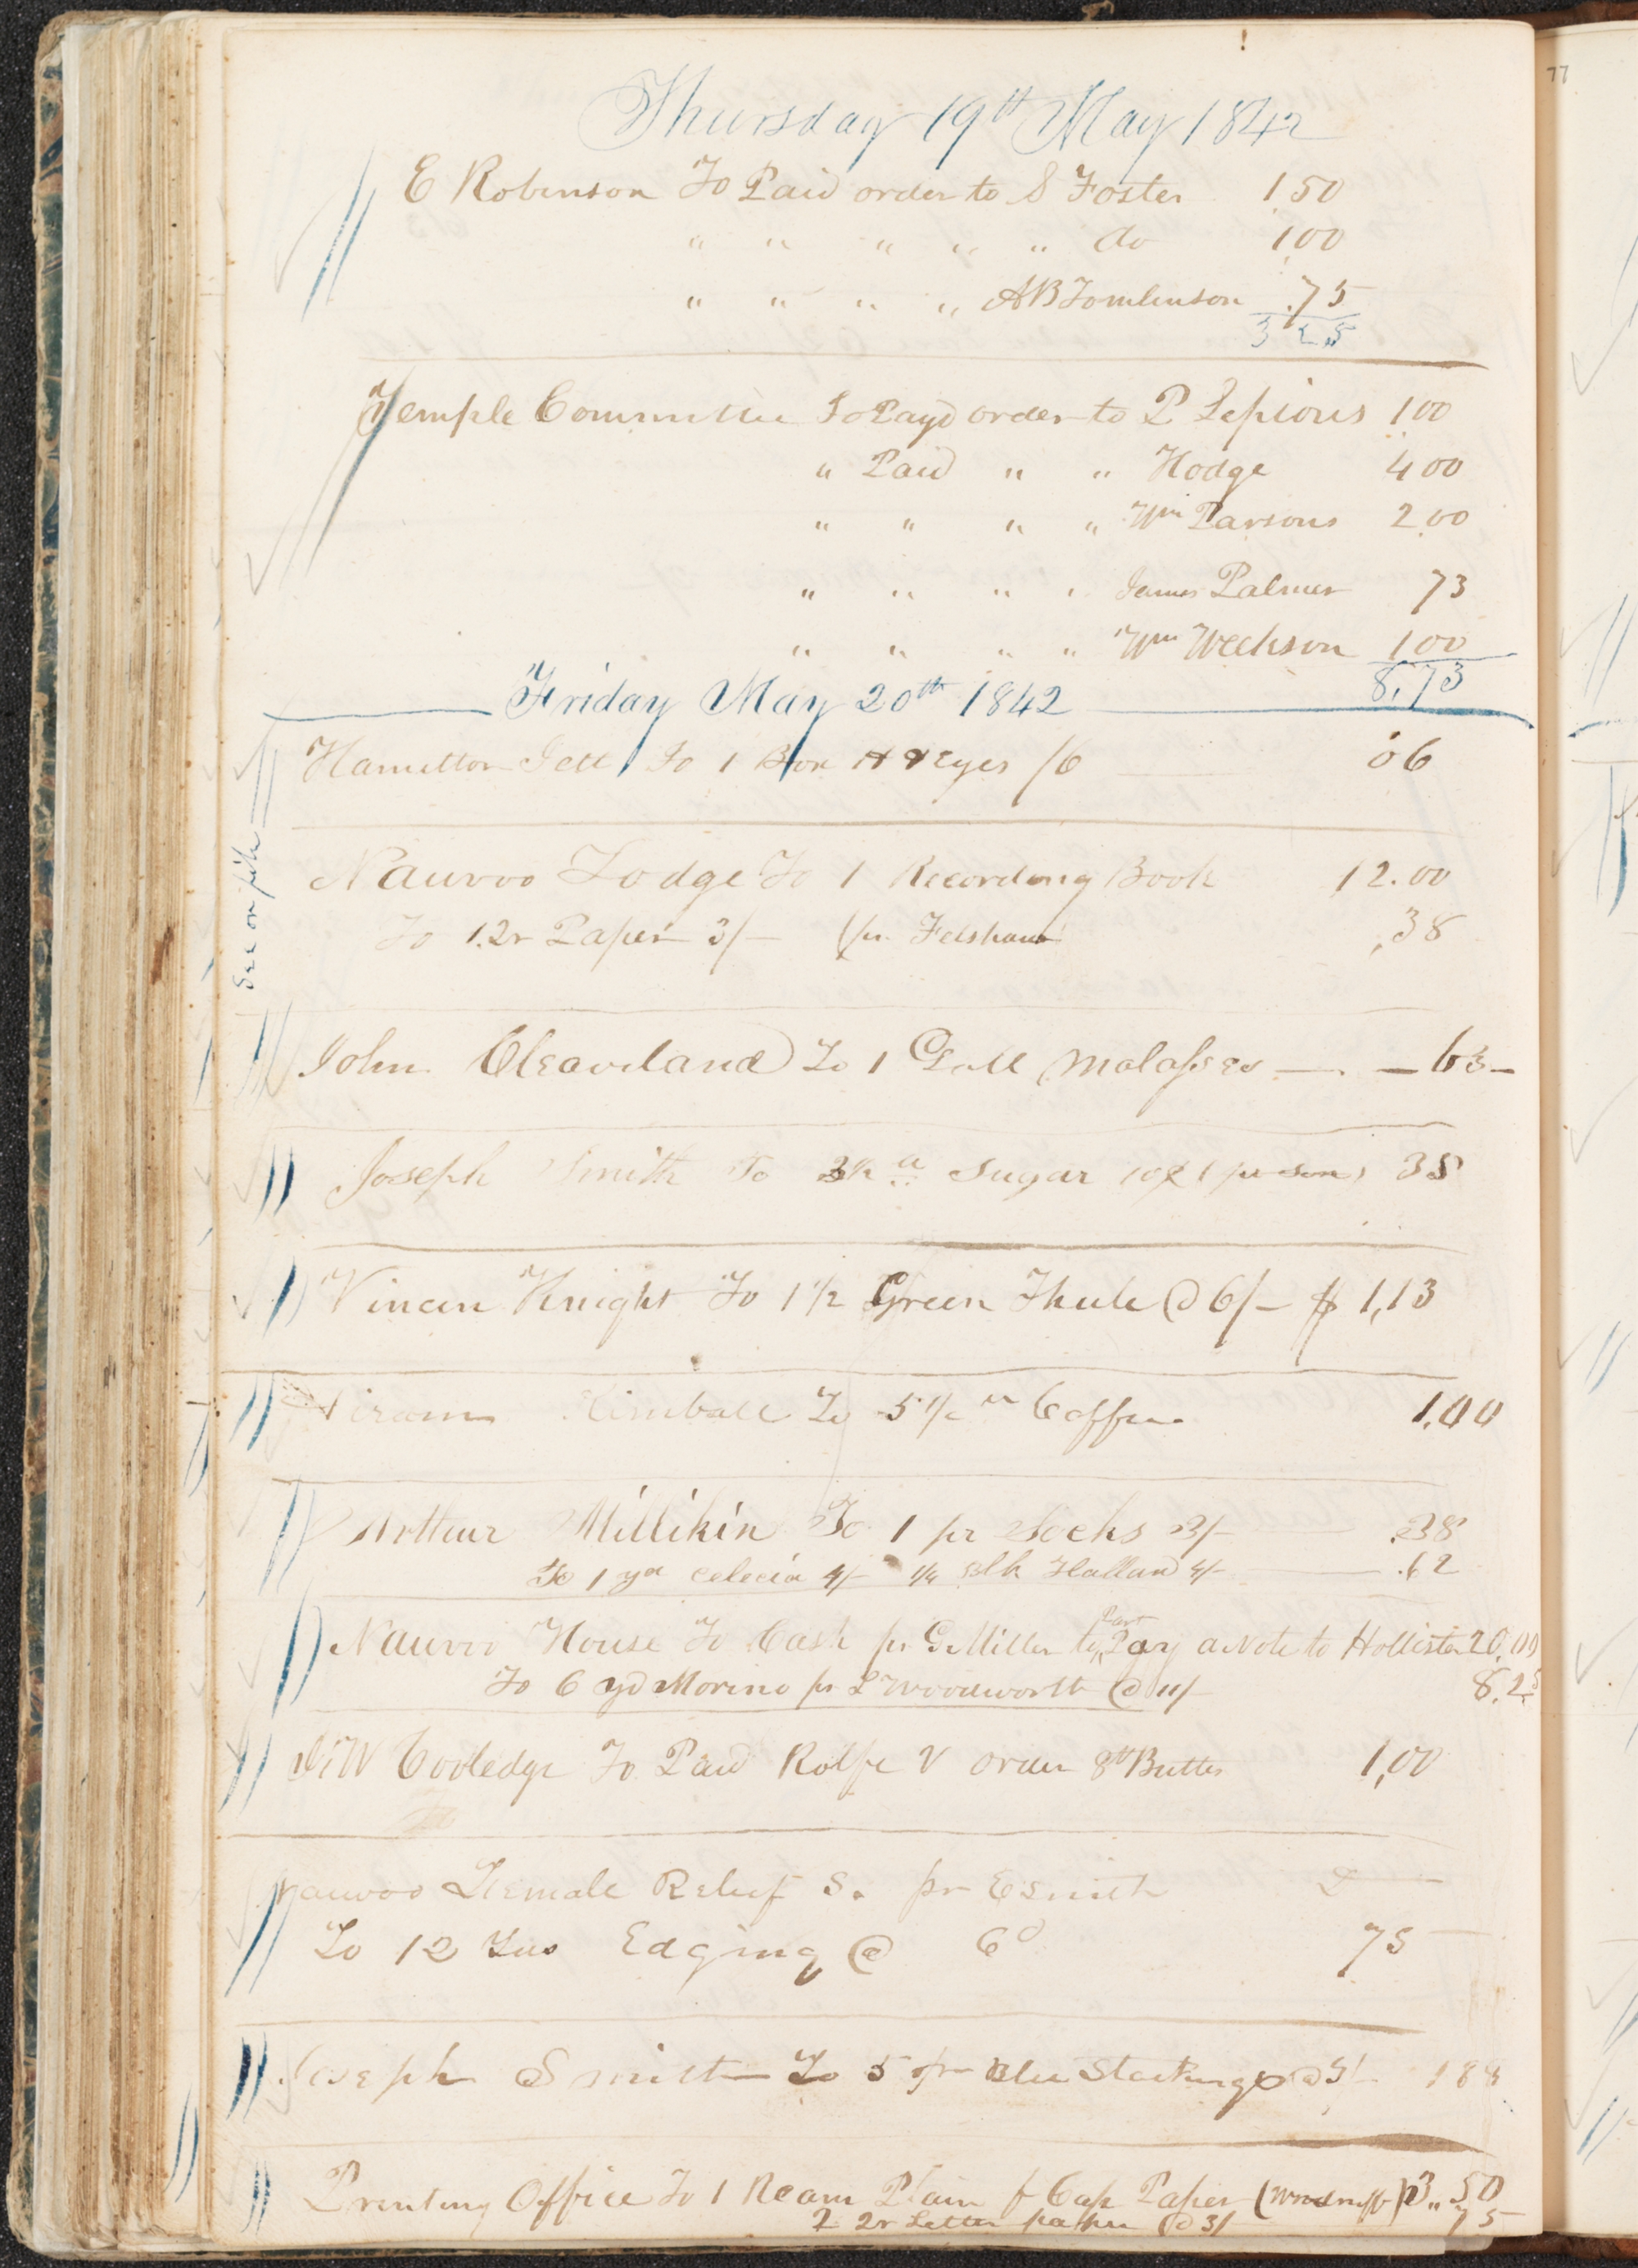 77
Thursday 19th May 1842
E Robinson To Paid order to S Foster 1.50
" " " " " do 1.00
" " " " A B Tomlinson .75
3 25
Temple Committee To Payd order to P 1 00
" Paid " " Hodge 4 00
" " " " Wm Parsons 2.00
" " " " James Palmer 73
" " " " Wm Weekson 1 00
8.73
Friday May 20th 1842
Hamilton Jett To 1 Box H & Eyes /6 06
See on file
Nauvoo Lodge To 1 Recording Book 12.00
To 1.2r Paper 3/- (pr. Felshaw .38
John Cleaveland To 1 Gall Molasses — — 63 —
Joseph Smith To 3 Sugar pr son) 38
Vincen Knight To 1 1/2 Green @ 6/- $ 1,13
Hiram Kimball To 5 1/2 Coffee 1.00
Arthur Millikin To 1 pr Socks 3/- .38
To 1 yd celecia 4/- 1/4 Blk Holland 4/- .62
Nauvoo House To Cash pr G Miller to Part Pay a Note to Hollister 20.00
To 6 yd Morino pr L Woodworth @ 11/- 8.25
J W Cooledge To Paid Rolfe V order 8 Butter 1,00
Nauvoo Female Relief S. pr E Smith
To 12 Yds Edging @ 6d 75
Joseph Smith To 5 pr Blu Stockings @ 3/- 1 88
Printing Office To 1 Ream Plain f Cap Paper (Woodruff) 3,,50
2 2r Letter paper @ 3/ 75